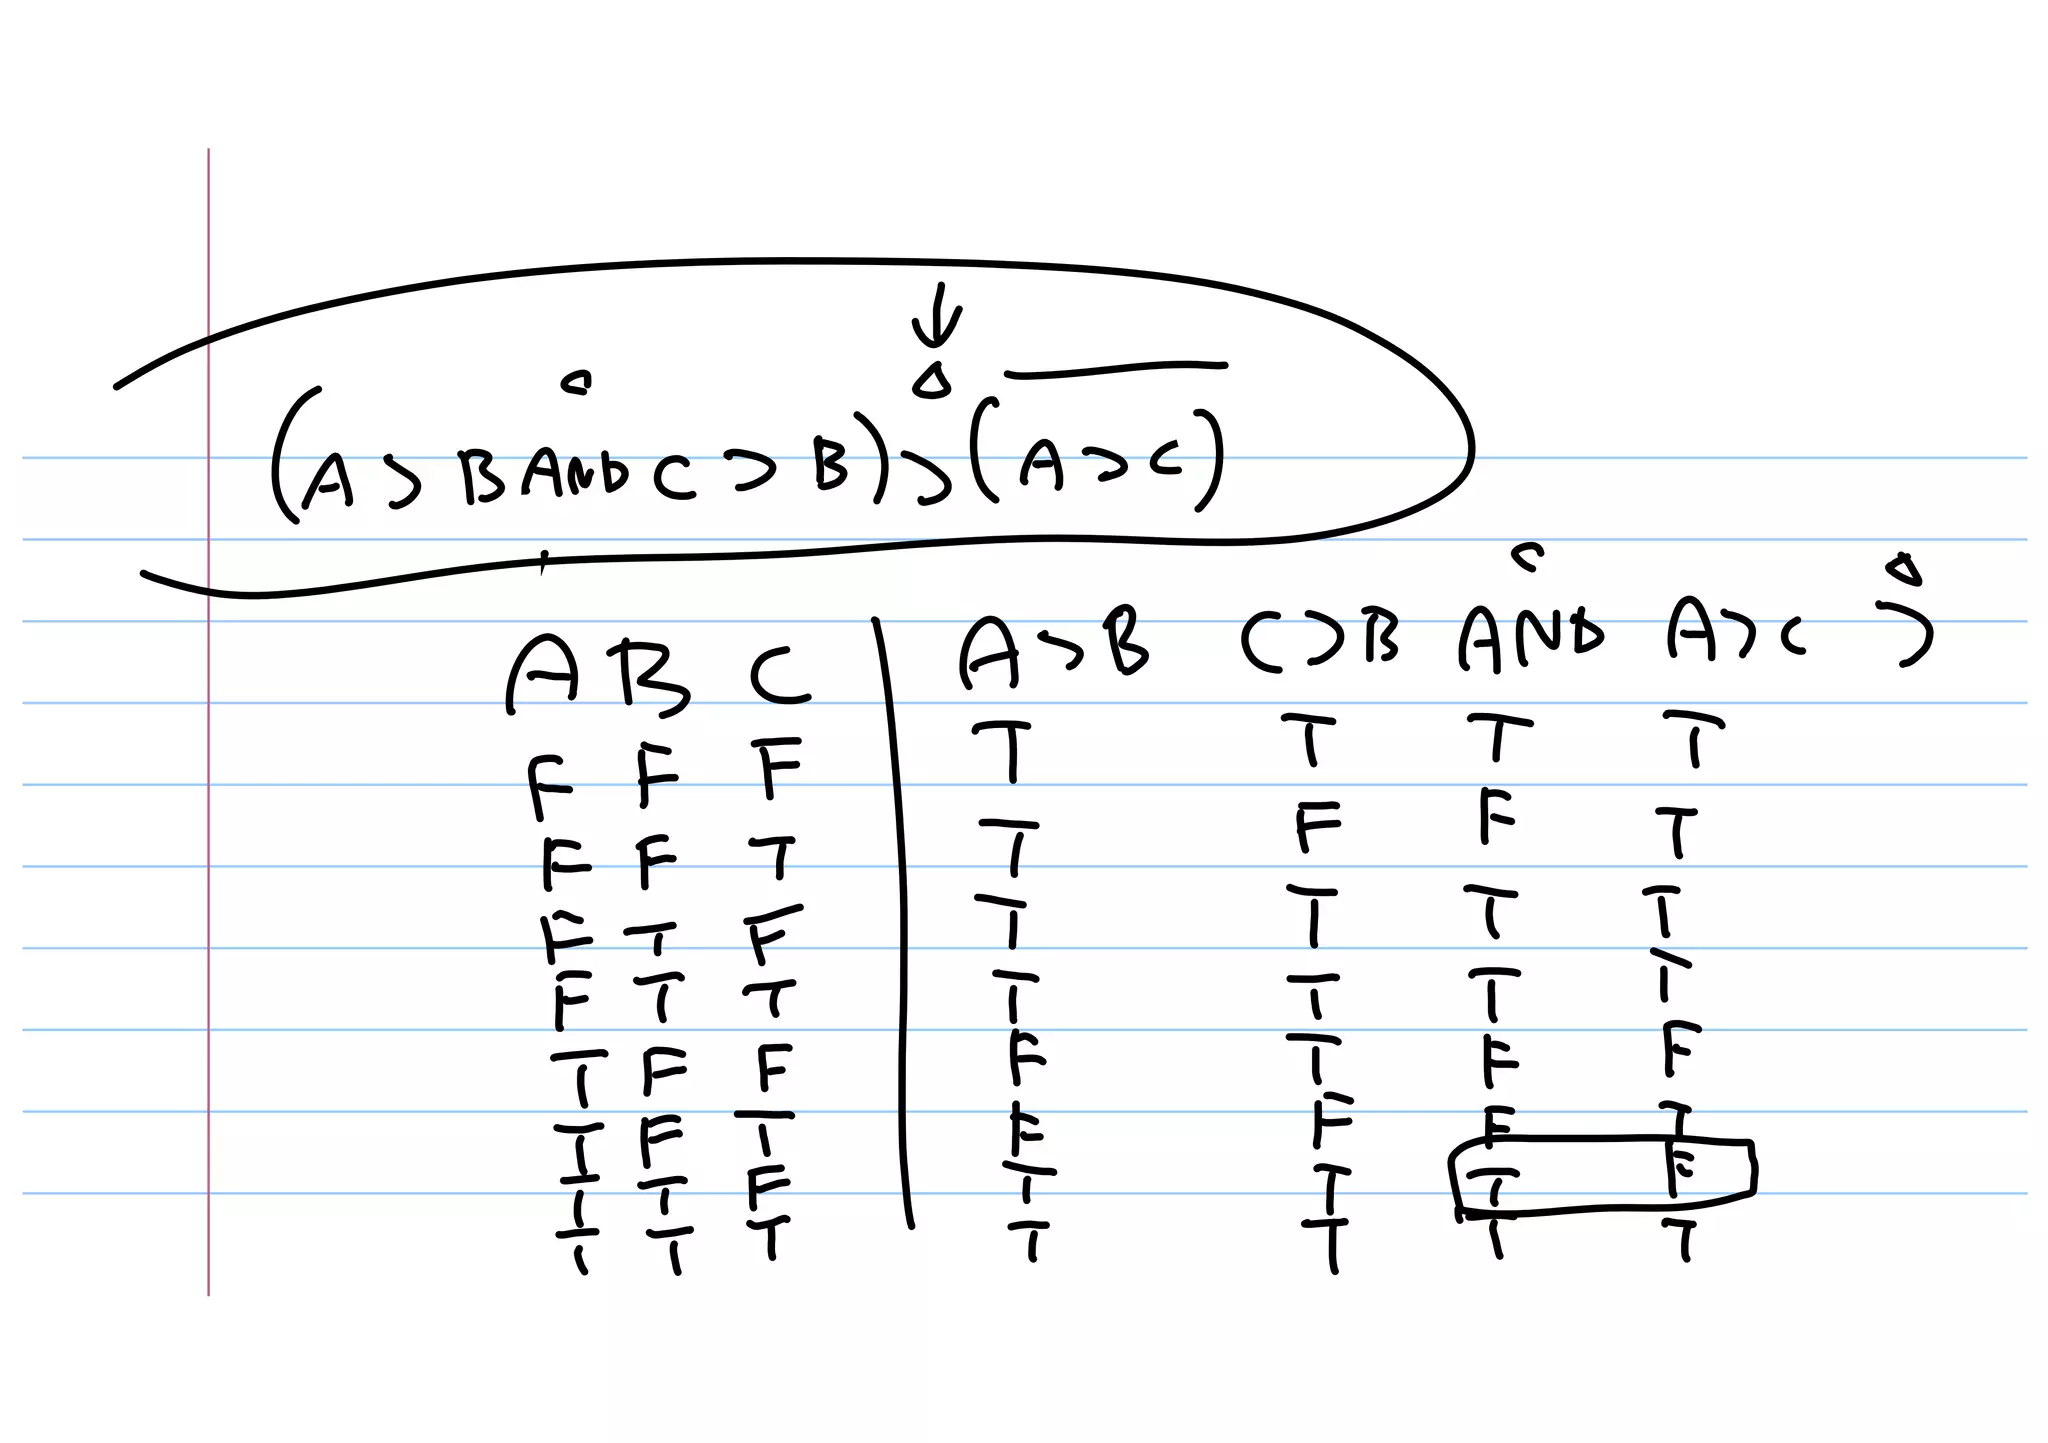 (A > B AND C > B) > (A > C)
A B C | A > B C > B AND A > C >
F F F T T T T
F F T T F F T
F T F T T T T
F T T T T T T
T F F F T F F
T F T F F F T
T T F T T T F
T T T T T T T